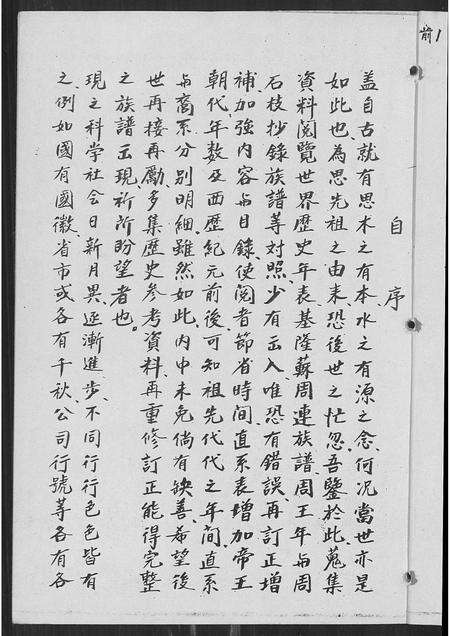 前1
自序
盖自古就有思木之有本、水之有源之念、何况當世亦是
如此也為思先祖之由来恐後世之忙忽、吾鑒於此、蒐集
資料閲覽世界歷史年表、基隆蘇周連族譜、周王年与周
石枝抄錄族譜等对照、少有出入、唯恐有錯誤、再訂正增
補、加強内容与目錄、使閲者節省時間、直系表增加帝王
朝代、年数及西歷紀元前後、可知祖先代代之年間、直系
与裔系分别明細雖然如此、内中未免倘有缺善、希望後
世再接再勵、多集歷史參考資料、再重修訂正能得完整
之族譜出現、祈所盼望者也。
現之科学社会日新月異、逐漸進步、不同行行色色皆有
之、例如國有國徽、省市或各有千秋、公司行號等各有各